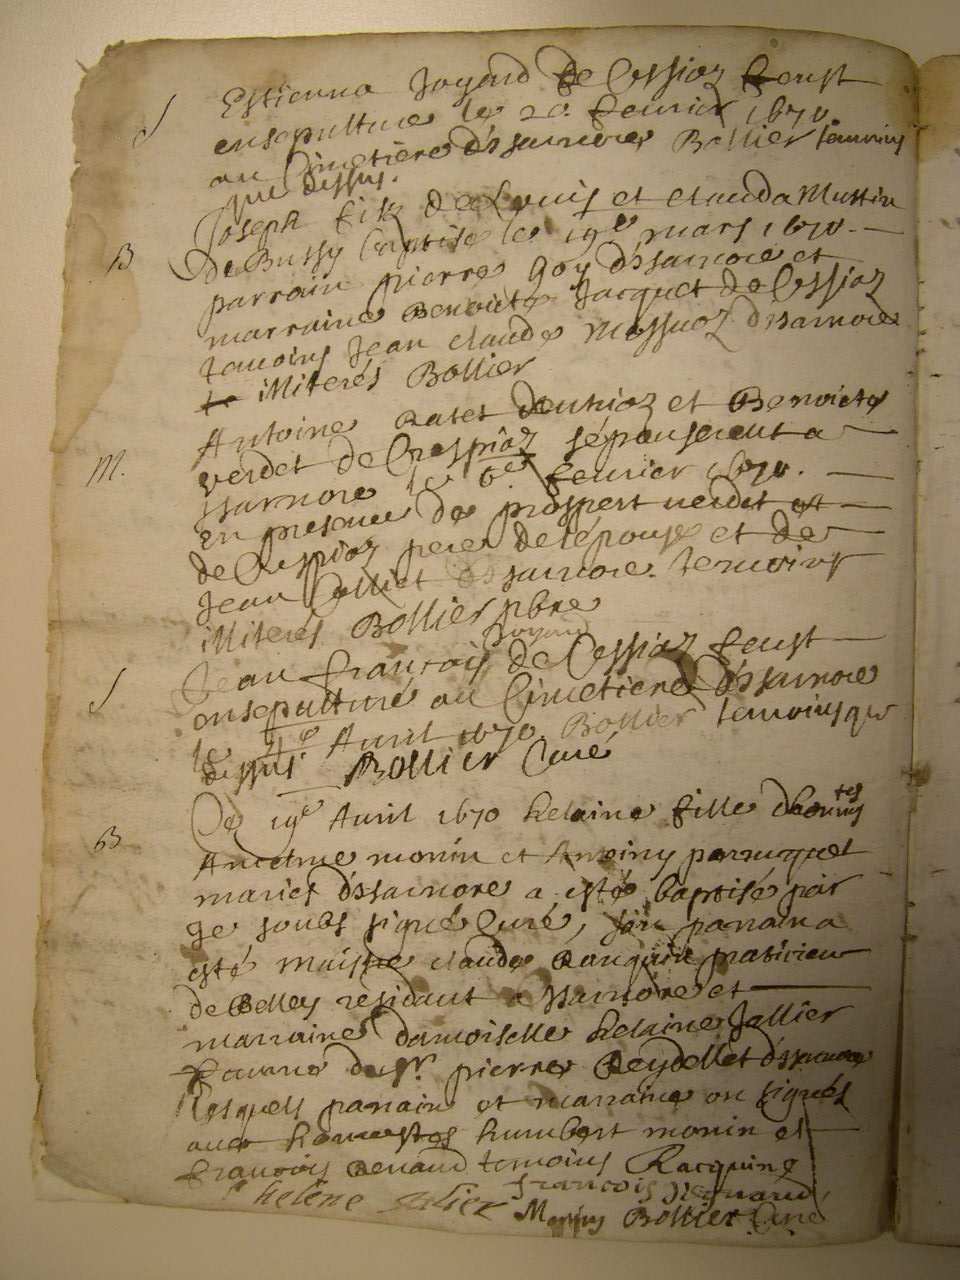 S Estienna Joyard de Cessiaz feust
ensepulture le 20 feurier 1670
au Cimetiere d'Isarnore Bollier temoins
que dessus.
Joseph filz de Louis et Clauda Mustin
B de Bussy baptise le 19e mars 1670.
parrain pierre Goy d'Isarnore et
marraine Benoicte Jacquet de Cessiaz
temoins Jean Claude d'Isarnore
illiterés Bollier
Antoine Ratet et Benoicte
M. verdet de Crespiaz sepouserent a
Isarnore le 6e feurier 1670.
en presence de prospert verdet
de Crespiaz pere de lépouse et de
Jean Colliet d'Isarnore. temoins
illiterés Bollier pbre
Joyard
S Jean françois de Cessiaz feust
ensepulturé au Cimetiere d'Isarnore
le 4e Auril 1670. Bollier temoins que
dessus Bollier Curé
Ce 19e Auril 1670 helaine fille d'honnestes
B Ancelme monin et perruquet
mariés d'Isarnore a esté baptisé par
Je soubs signé Curé, son parrain a
esté Maistre Claude Racquin praticien
de Belley residant a Isarnore et
marraine damoiselle helaine Jallier
femme du Sr. pierre Reydellet d'Isarnore
lesquels parrain et marraine on signés
auec honnestes humbert monin et
françois Renaud temoins Racquin
helene Jalier françois Regnaud
Monin Bollier Curé